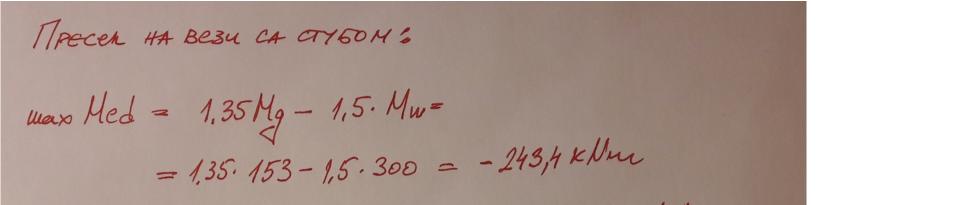 Пресек на вези са стубом:
max Med = 1.35 Mg − 1,5 · Mw =
= 1.35 · 153 − 1,5 · 300 = −243,4 кNm